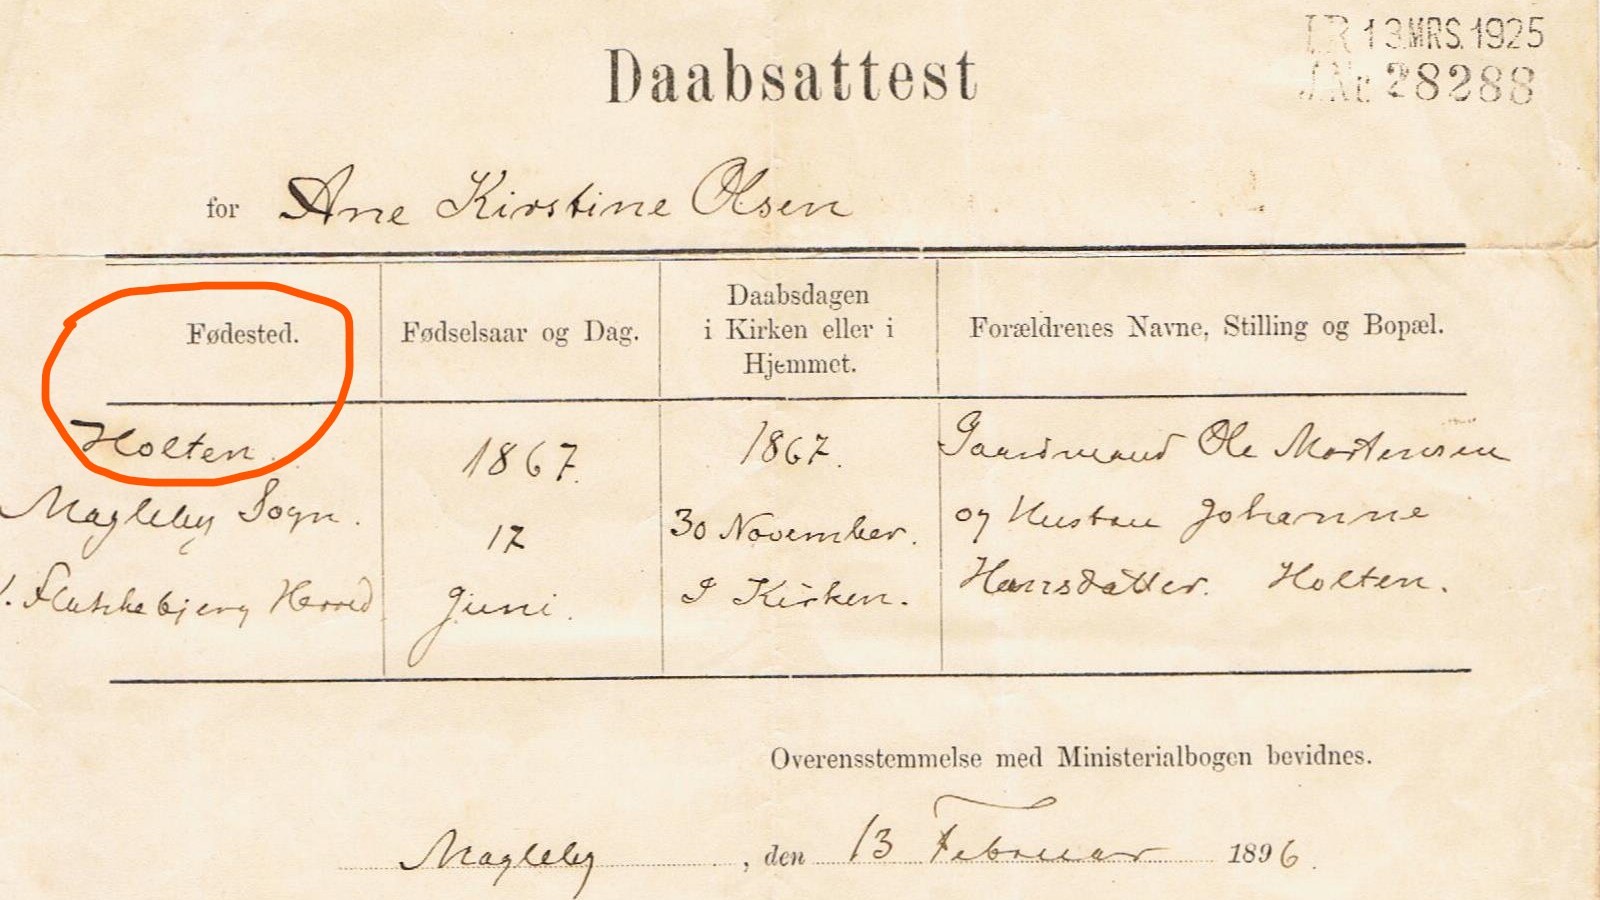 13.MRS.1925
J.Nr. 28288
Daabsattest
for Ane Kirstine Olsen
Fødested.
Fødselsaar og Dag.
Daabsdagen
i Kirken eller i
Hjemmet.
Forældrenes Navne, Stilling og Bopæl.
Holten.
Magleby Sogn.
V. Flakkebjerg Herred
1867.
17
Juni.
1867.
30 November.
I Kirken.
Gaardmand Ole Mortensen
og Hustru Johanne
Hansdatter. Holten.
Overensstemmelse med Ministerialbogen bevidnes.
Magleby, den 13 Februar 1896.